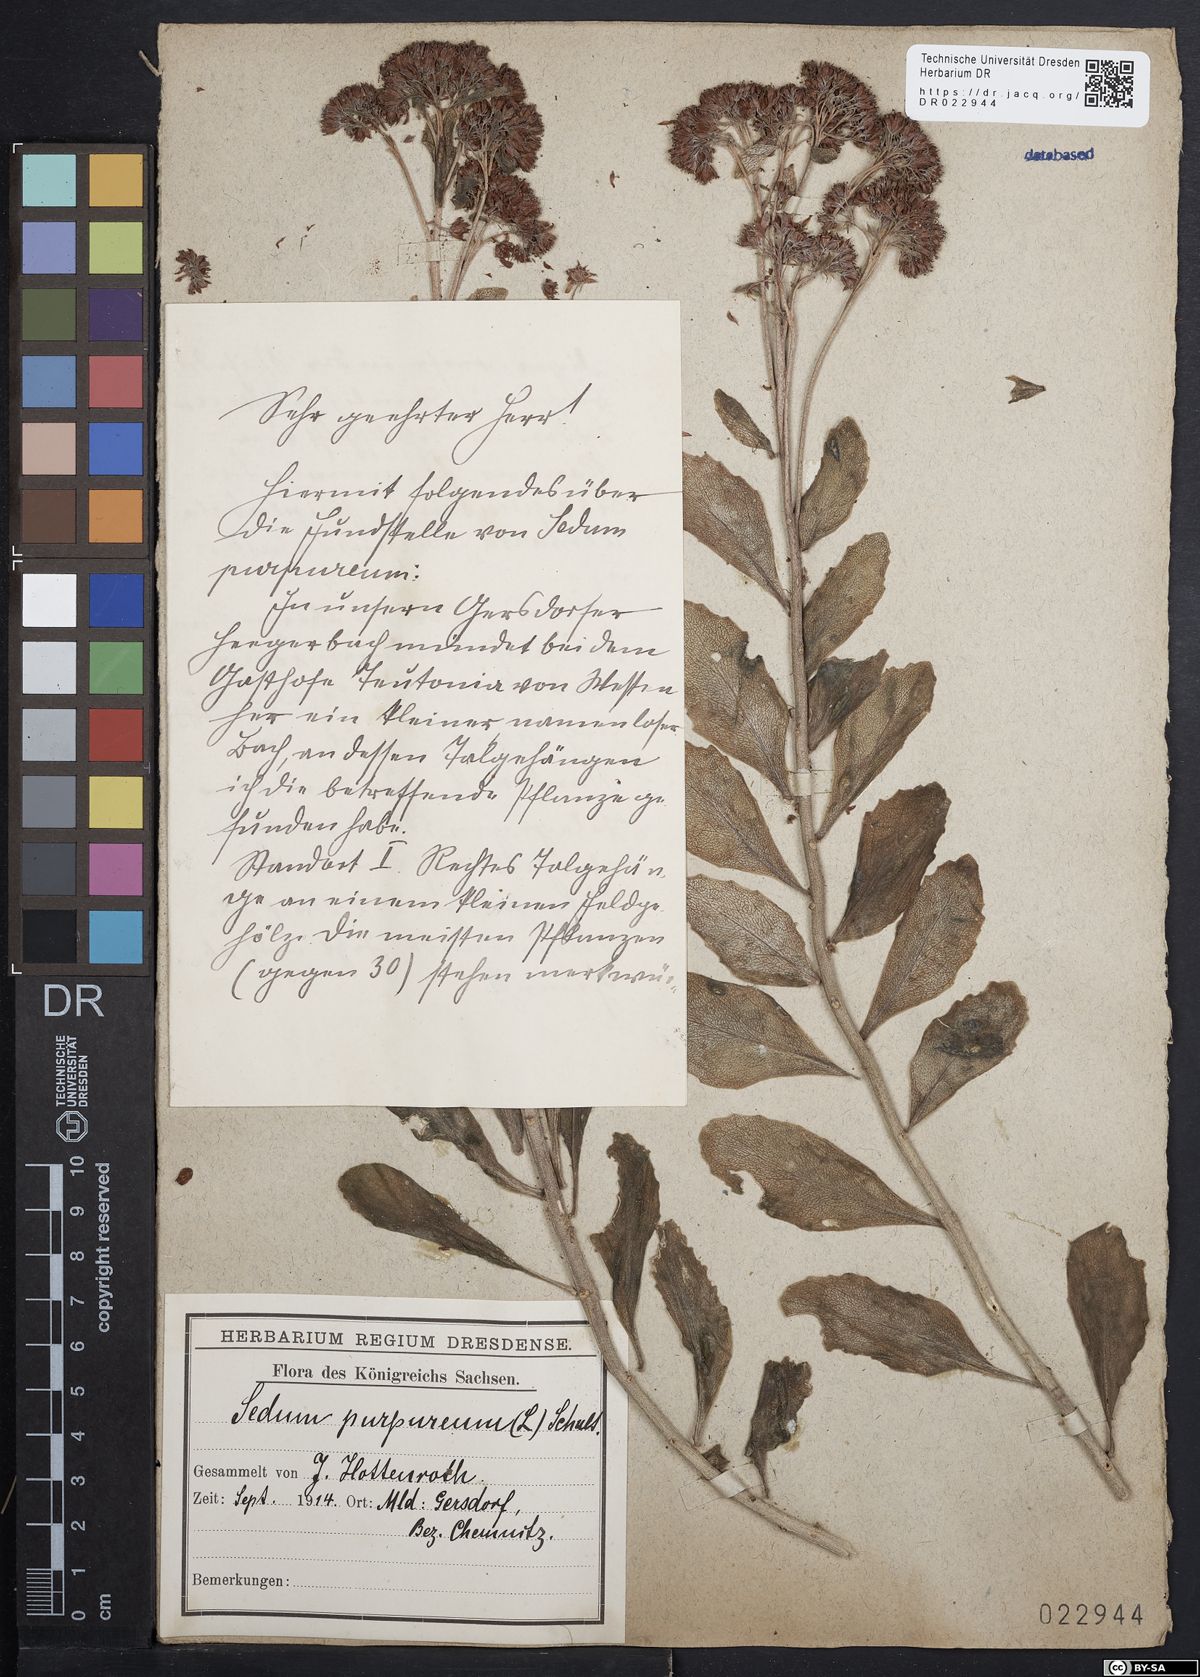 Technische Universität Dresden
Herbarium DR
https://dr.jacq.org/
DR022944
databased
Sehr geehrter Herr!
Hiermit folgendes über
die Fundstelle von Sedum
purpureum:
In unsern Gersdorfer
Hegerbach mündet bei dem
Gasthofe Teutonia von Westen
her ein kleiner namenloser
Bach, an dessen Talgehängen
ich die betreffende Pflanze ge
funden habe.
Standort I. Rechtes Talgehän
ge an einem kleinen Feldge
hölz. Die meisten Pflanzen
(gegen 30) stehen merkwür-
DR
TECHNISCHE
UNIVERSITÄT
DRESDEN
copyright reserved
10
9
8
7
6
5
4
3
2
1
0
cm
HERBARIUM REGIUM DRESDENSE.
Flora des Königreichs Sachsen.
Sedum purpureum (L) Schult.
Gesammelt von J. Hottenroth.
Zeit: Sept. 1914. Ort: Mld: Gersdorf,
Bez. Chemnitz.
Bemerkungen:
022944
cc BY-SA